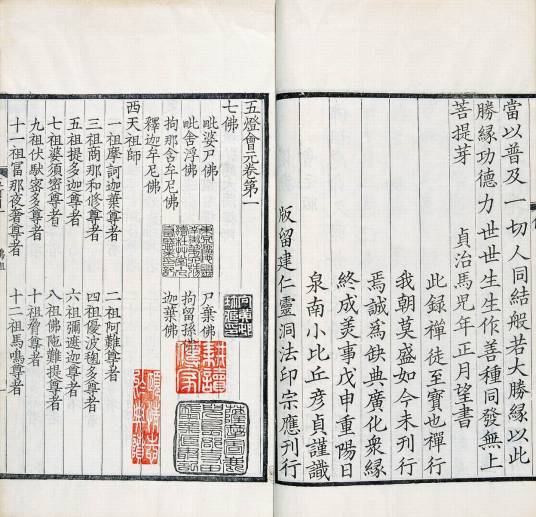 當以普及一切人同結般若大勝緣以此
勝緣功德力世世生生作善種同發無上
菩提芽
貞治馬児年正月望書
此録禪徒至寶也禪行
我朝莫盛如今未刊行
焉誠為缺典廣化衆緣
終成美事戊申重陽日
泉南小比丘彦貞謹識
版留建仁靈洞法印宗應刊行
五燈會元卷第一
七佛
毗婆尸佛 尸棄佛
毗舍浮佛 拘留孫
拘那舍牟尼佛 迦葉佛
釋迦牟尼佛
西天祖師
一祖摩訶迦葉尊者 二祖阿難尊者
三祖商那和修尊者 四祖優波毱多尊者
五祖提多迦尊者 六祖彌遮迦尊者
七祖婆須密尊者 八祖佛陁難提尊者
九祖伏馱密多尊者 十祖脅尊者
十一祖富那夜奢尊者 十二祖馬鳴尊者
耕讀傳家